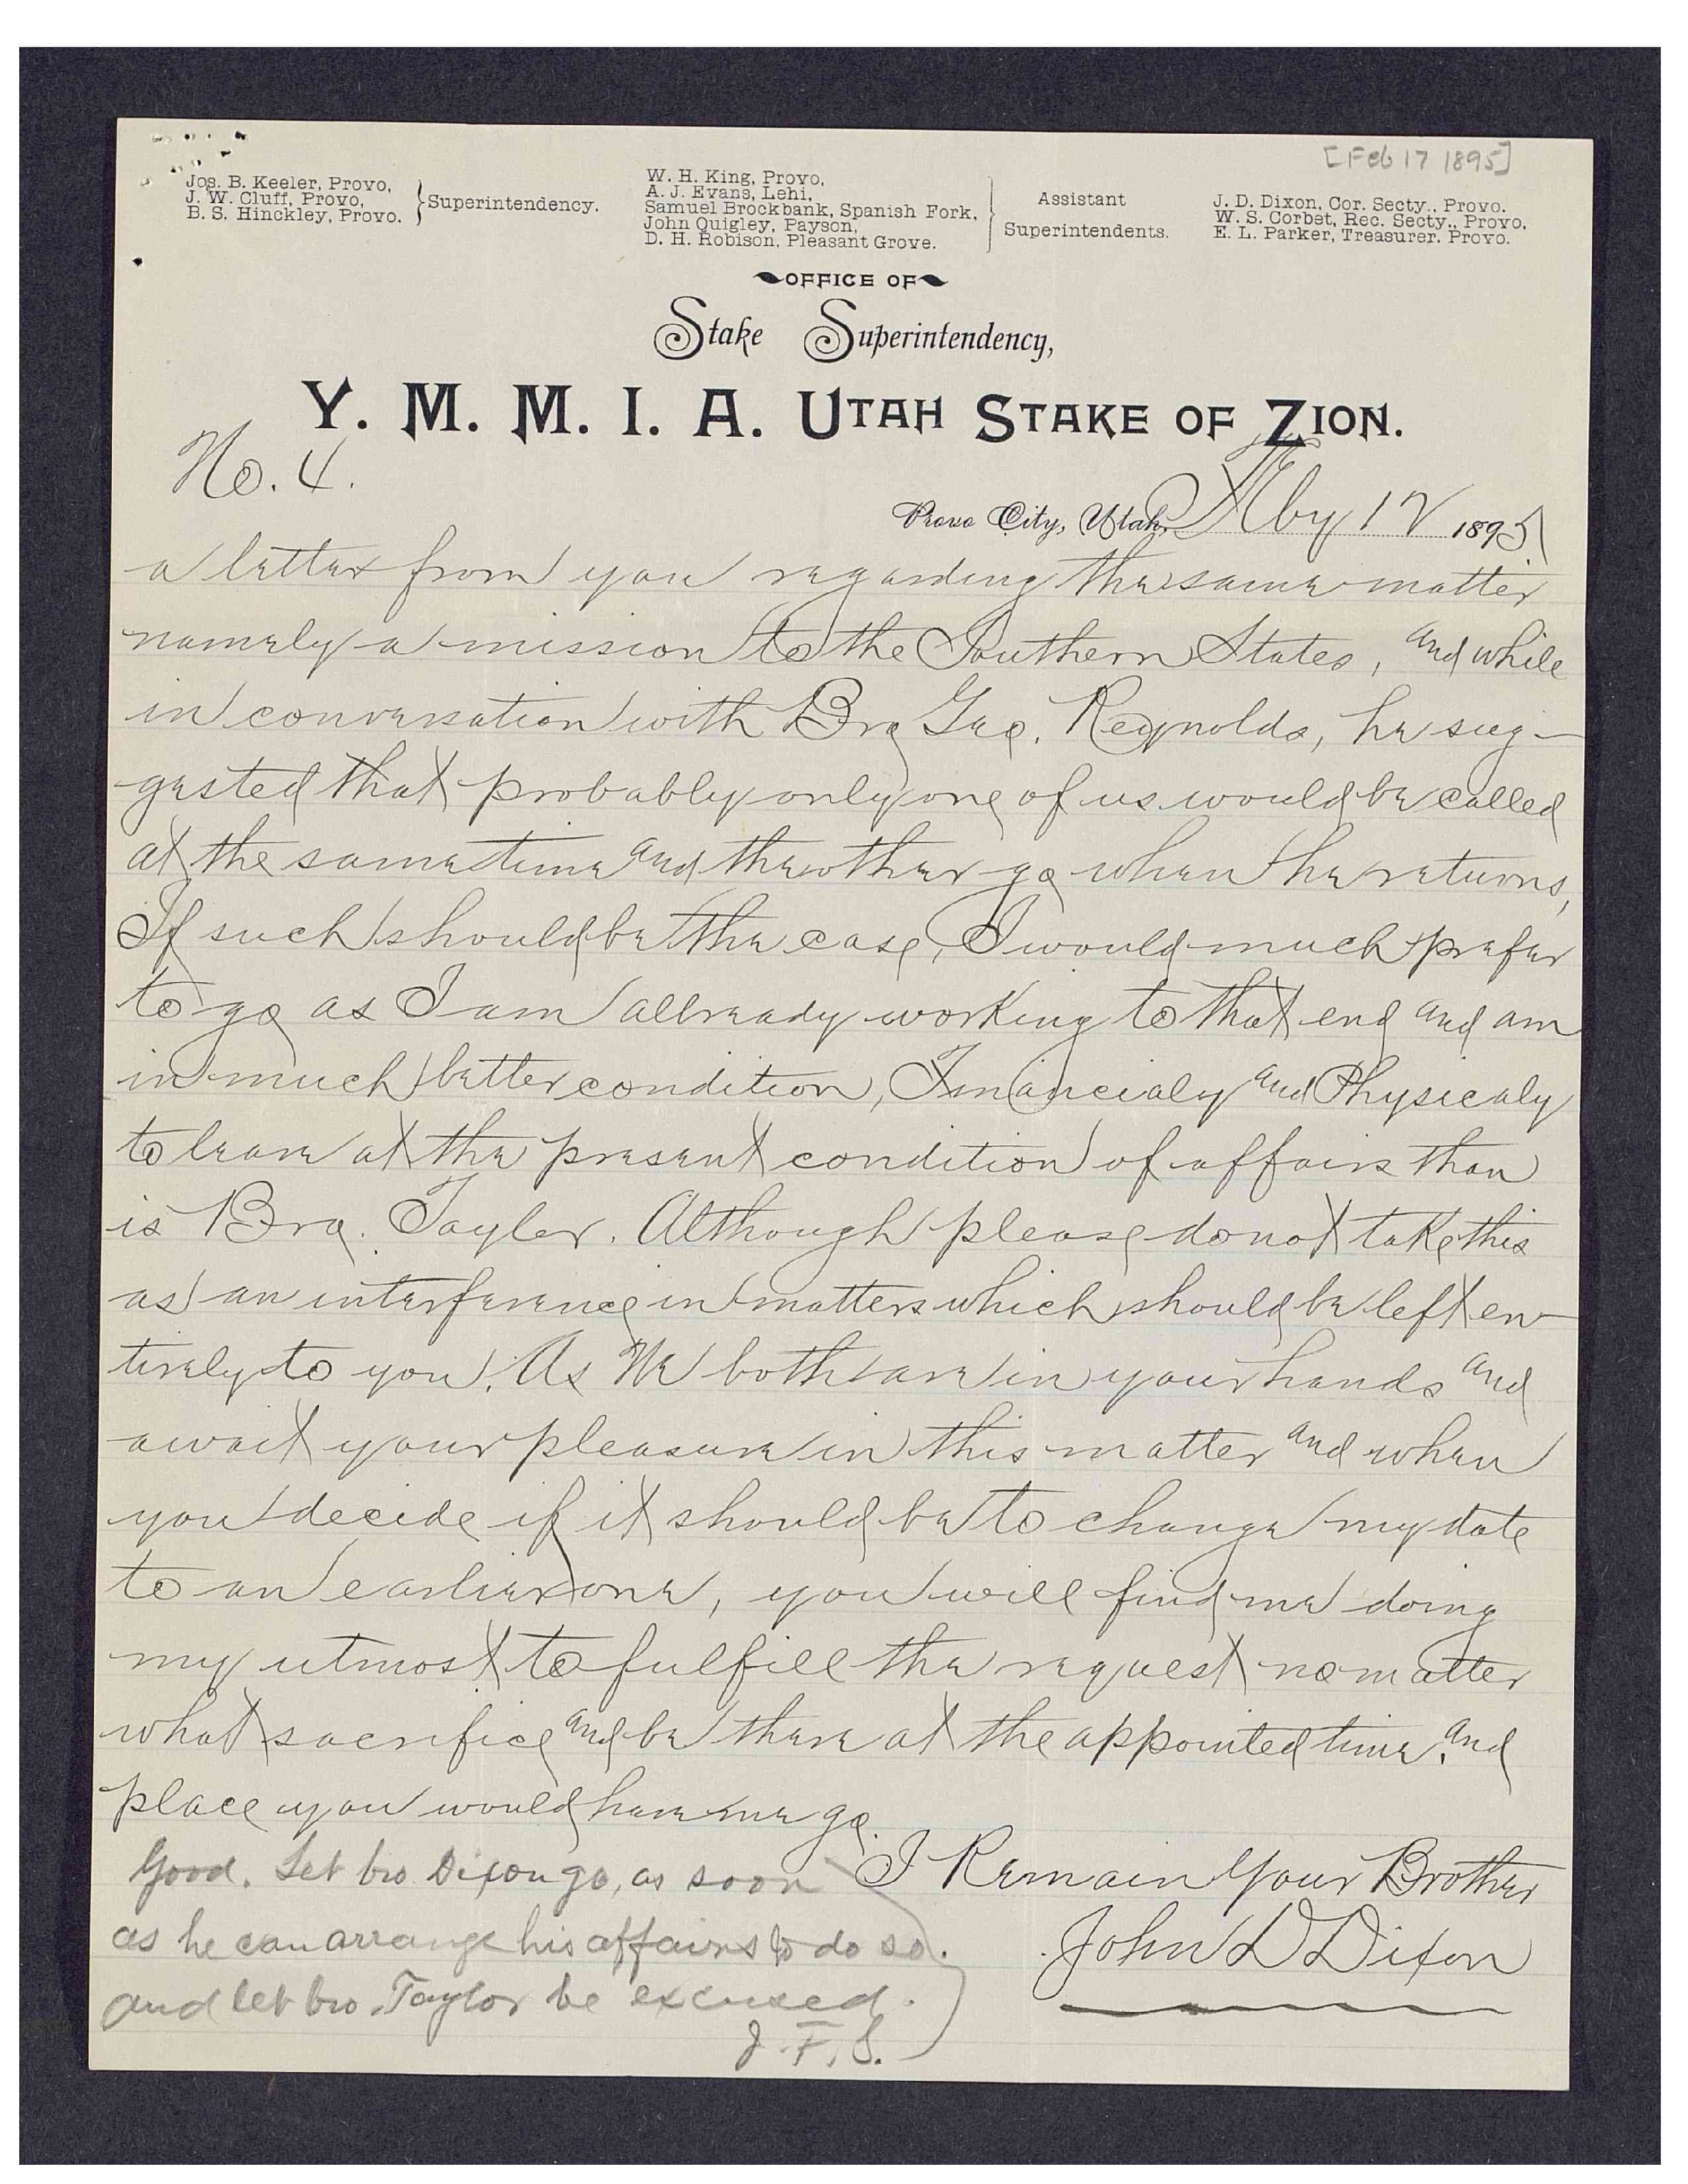 [Feb 17 1895]
Jos. B. Keeler, Provo,
J. W. Cluff, Provo,
B. S. Hinckley, Provo.
Superintendency.
W. H. King, Provo,
A. J. Evans, Lehi,
Samuel Brockbank, Spanish Fork,
John Quigley, Payson,
D. H. Robison, Pleasant Grove.
Assistant
Superintendents.
J. D. Dixon, Cor. Secty., Provo.
W. S. Corbet, Rec. Secty., Provo,
E. L. Parker, Treasurer. Provo.
OFFICE OF
Stake Superintendency,
Y. M. M. I. A. UTAH STAKE OF ZION.
No. 4.
Provo City, Utah, Feby 17 1895
a letter from you regarding the same matter
namely a mission to the Southern States, and while
in conversation with Bro Geo. Reynolds, he sug-
gested that probably only one of us would be called
at the same time and the other go when he returns,
If such should be the case, I would much prefer
to go as I am allready working to that end and am
in much better condition, Financialy and Physicaly
to leave at the present condition of affairs than
is Bro. Tayler. Although please do not take this
as an interference in matters which should be left en-
tirely to you. As We both are in your hands and
await your pleasure in this matter and when
you decide if it should be to change my date
to an earlier one, you will find me doing
my utmost to fulfill the request no matter
what sacrifice and be there at the appointed time and
place you would have me go.
I Remain Your Brother
John D Dixon
Good. Let bro Dixon go, as soon
as he can arrange his affairs to do so.
and let bro. Taylor be excused.
J. F. S.